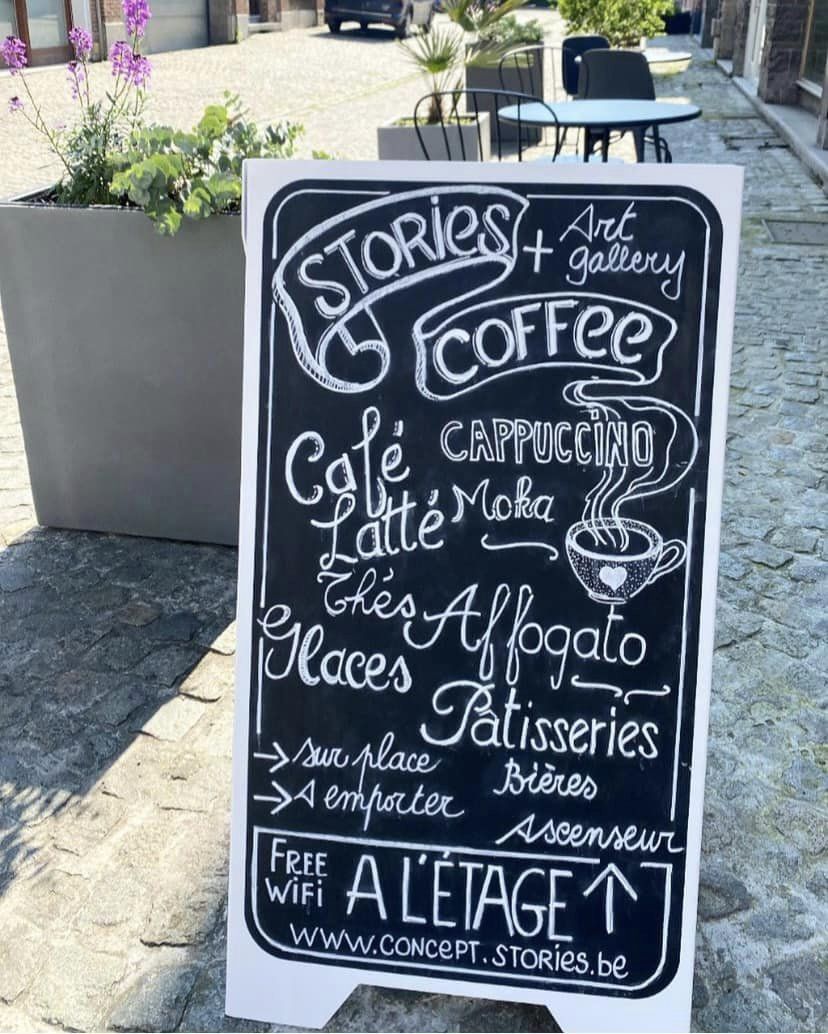 STORIES + Art
gallery
COFFEE
Café CAPPUCCINO
Latté Moka
Thés Affogato
Glaces
Pâtisseries
→ sur place
Bières
→ A emporter
Ascenseur
FREE
WIFI
A L'ÉTAGE ↑
WWW.CONCEPT.STORIES.be